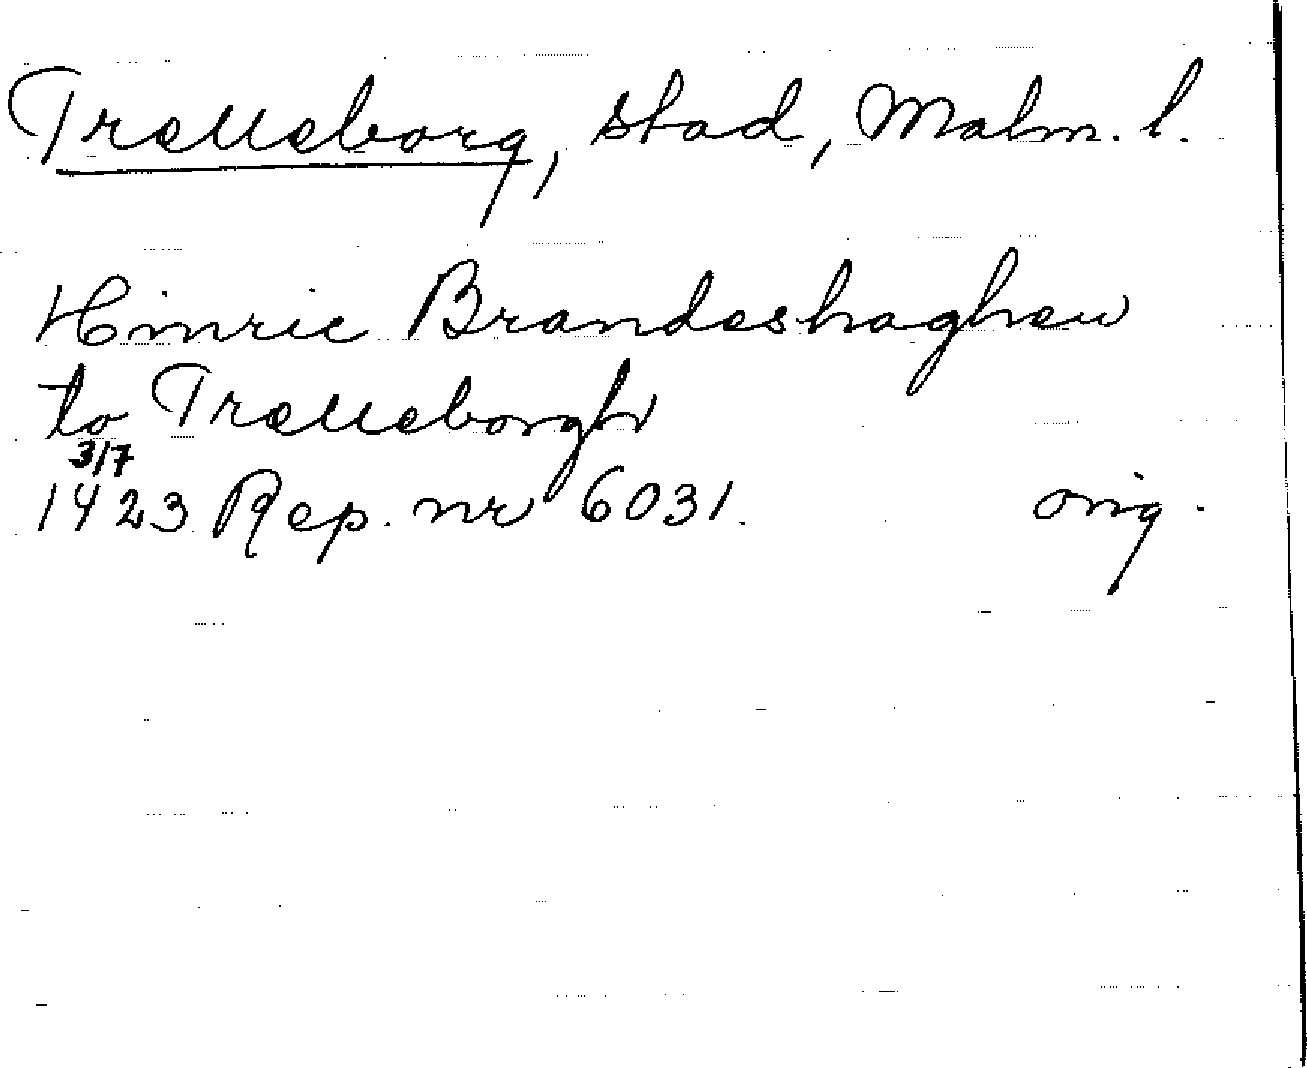 Trelleborg, stad, Malm. l.
Hinric Brandeshaghen
to Trelleborgh
3/7
1423 Rep. nr 6031. orig.